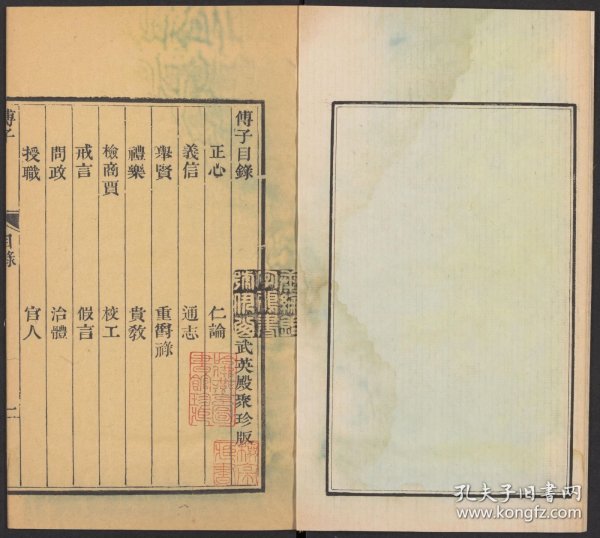 傅子目錄
武英殿聚珍版
正心
仁論
義信
通志
舉賢
重爵祿
禮樂
貴教
檢商賈
校工
戒言
假言
問政
治體
授職
官人
傅子
目錄
一
孔夫子旧书网
www.kongfz.com